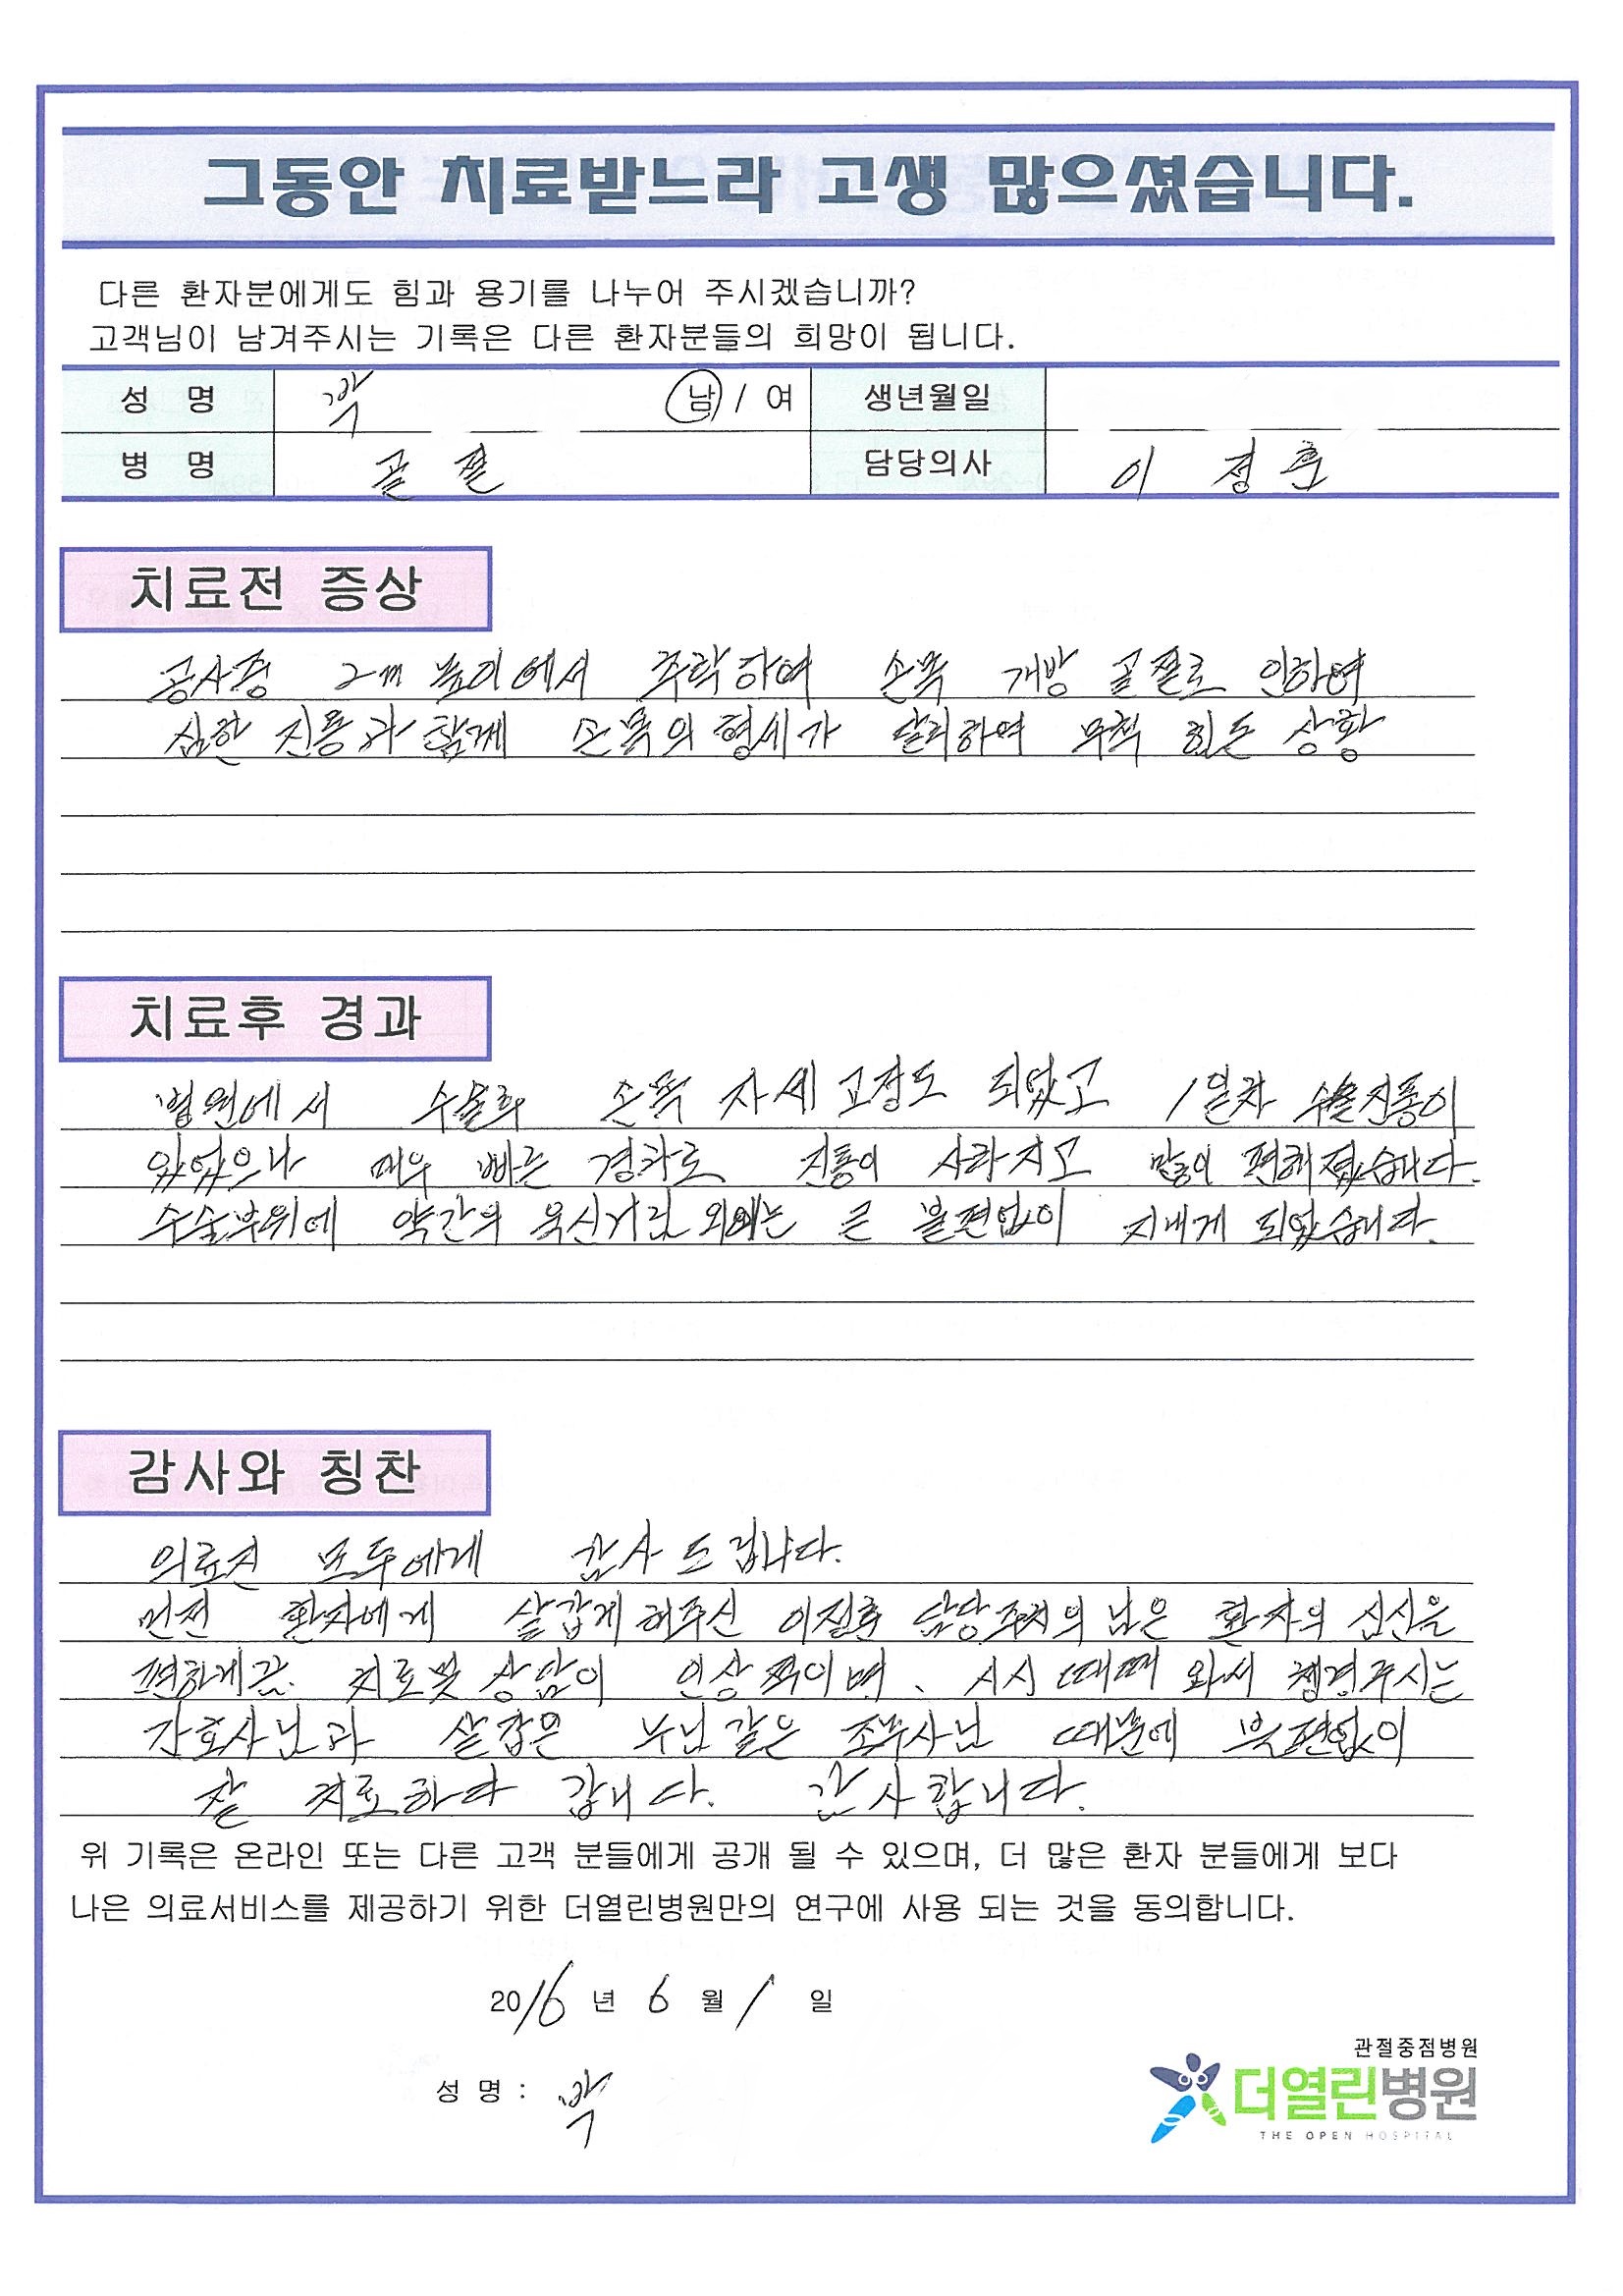 그동안 치료받느라 고생 많으셨습니다.
다른 환자분에게도 힘과 용기를 나누어 주시겠습니까?
고객님이 남겨주시는 기록은 다른 환자분들의 희망이 됩니다.
성 명 박 남 / 여 생년월일
병 명 골절 담당의사 이정훈
치료전 증상
공사중 2m 높이에서 추락하여 손목 개방 골절로 인하여
심한 진통과 함께 손목의 형세가 달리하여 무척 힘든 상황
치료후 경과
병원에서 수술후 손목 자세 고정도 되었고 1일차 진통이
있었으나 매우 빠른 경과로 진통이 사라지고 많이 편해졌습니다.
수술부위에 약간의 욱신거림 외에는 큰 불편없이 지내게 되었습니다.
감사와 칭찬
의료진 모두에게 감사드립니다.
먼저 환자에게 살갑게 해주신 담당주치의님은 환자의 심신을
편하게끔 치료및 상담이 인상적이며, 시시때때 와서 주시는
간호사님과 살갑은 누님같은 조무사님 때문에 불편없이
잘 치료하다 갑니다. 감사합니다.
위 기록은 온라인 또는 다른 고객 분들에게 공개 될 수 있으며, 더 많은 환자 분들에게 보다
나은 의료서비스를 제공하기 위한 더열린병원만의 연구에 사용 되는 것을 동의합니다.
2016 년 6 월 1 일
성 명 : 박
관절중점병원
더열린병원
THE OPEN HOSPITAL